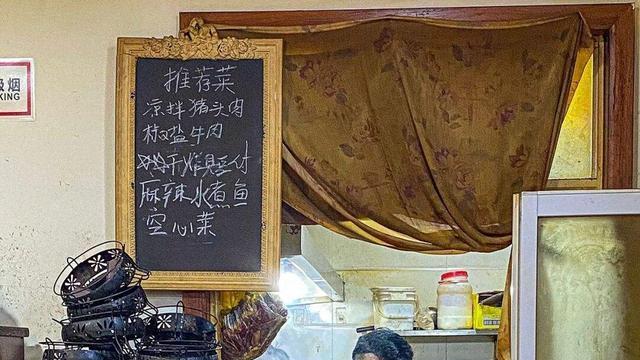 吸烟
KING
推荐菜
凉拌猪头肉
椒盐牛肉
干炸臭豆付
麻辣水煮鱼
空心菜